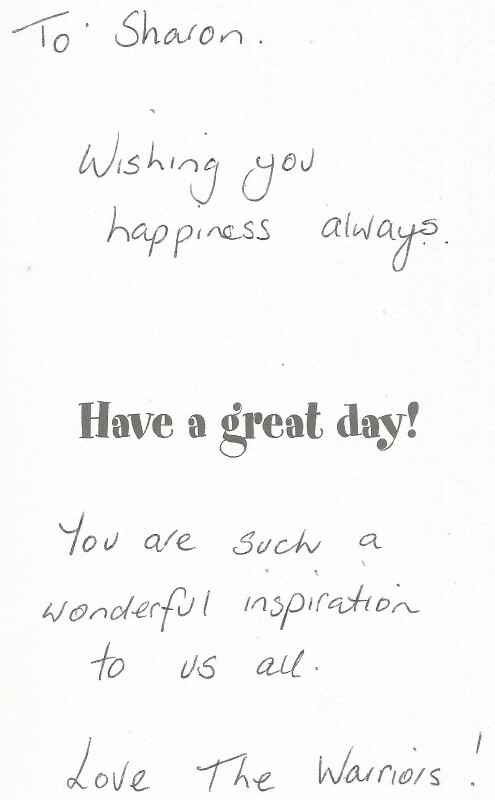 To Sharon.
Wishing you
happiness always.
Have a great day!
You are such a
wonderful inspiration
to us all.
Love The Warriors!